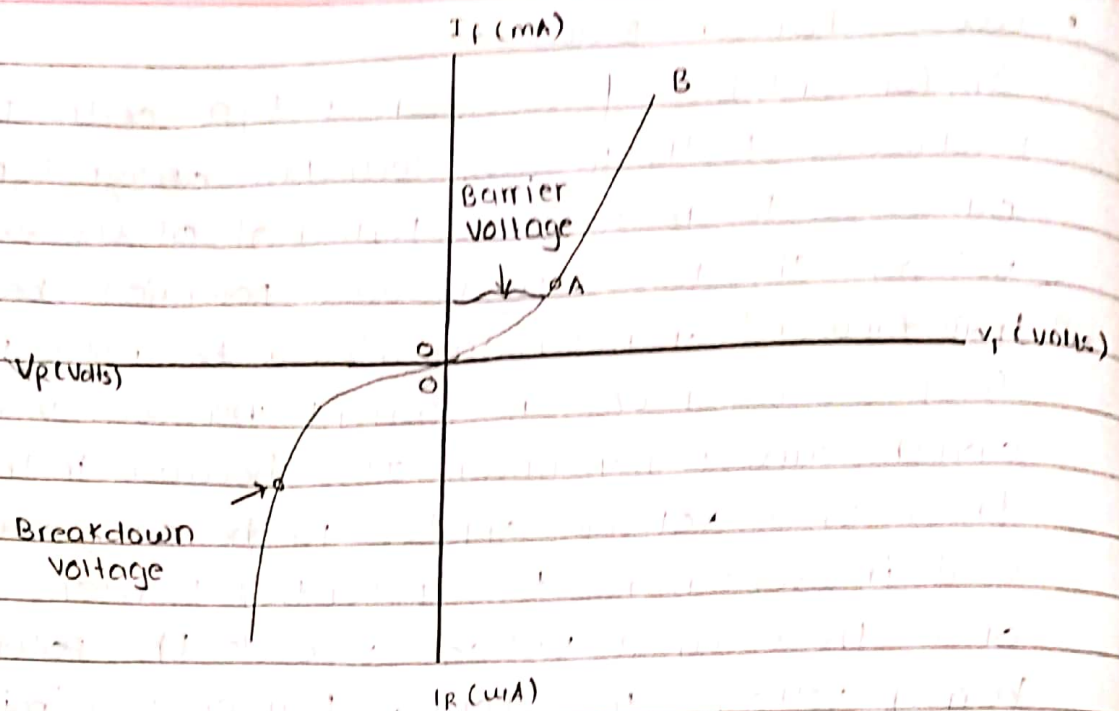 If (mA)
B
Barrier
voltage
A
O
Vf (volts)
VR (Volts)
O
Breakdown
voltage
IR (µA)